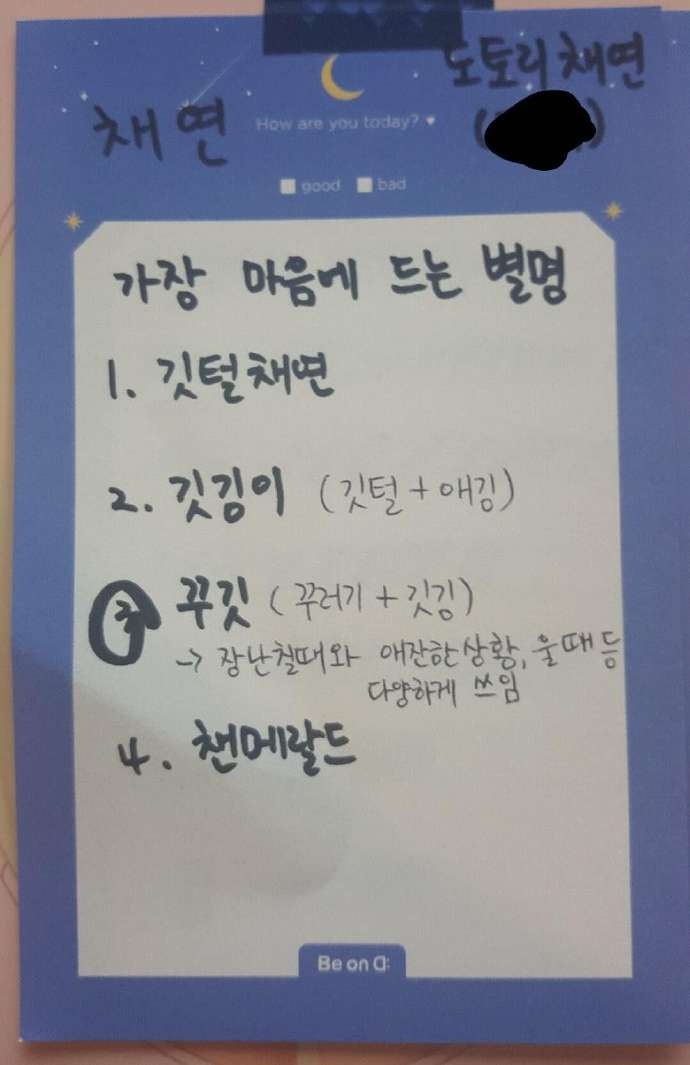 도토리채연
채연
How are you today? ♥
good bad
가장 마음에 드는 별명
1. 깃털채연
2. 깃깅이 (깃털 + 애깅)
3 꾸깃 (꾸러기 + 깃깅)
→ 장난칠때와 애잔한상황, 울때 등
다양하게 쓰임
4. 챈메랄드
Be on D: